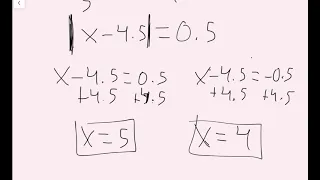 |x-4.5|=0.5
x-4.5=0.5 x-4.5=-0.5
+4.5 +4.5 +4.5 +4.5
x=5 x=4